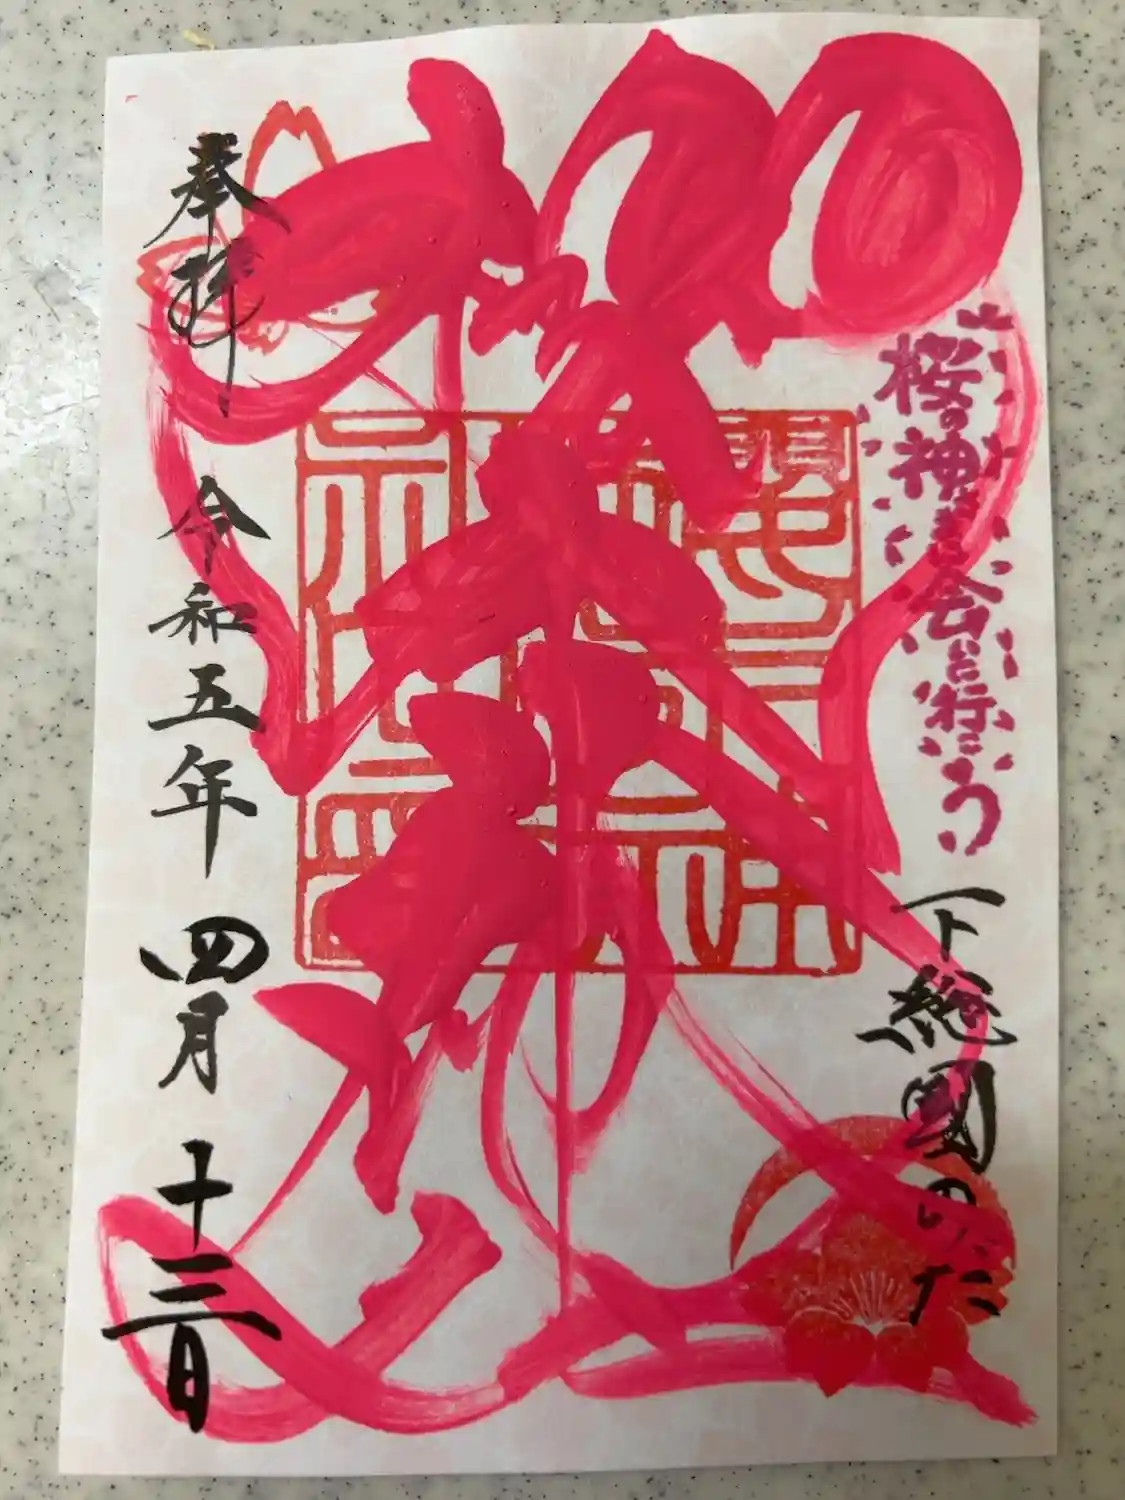 桜の神さまに会いに行こう
下総國のだ
櫻木神社
奉拝
令和五年 四月 十三日